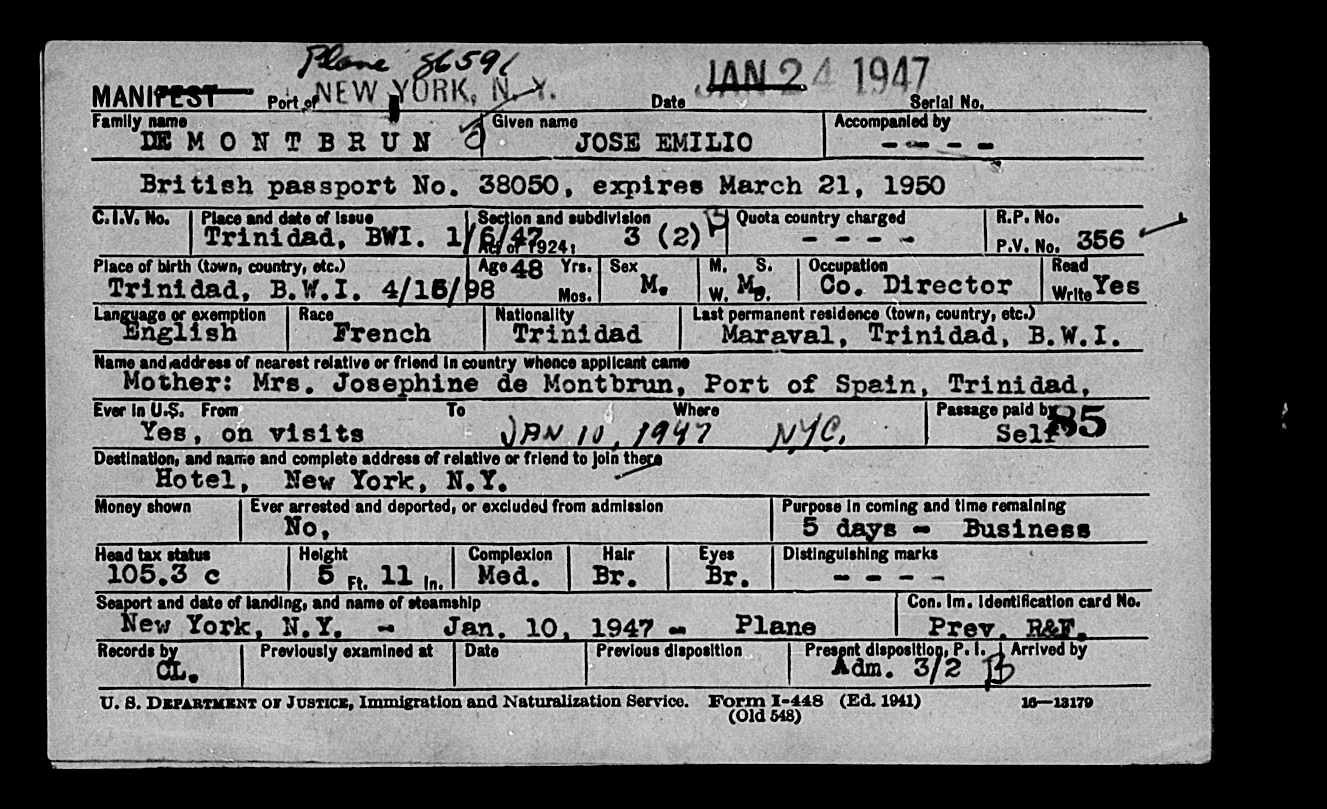 Plane 86591
MANIFEST Port of NEW YORK, N.Y. Date JAN 24 1947 Serial No.
Family name Given name Accompanied by
DE MONTBRUN JOSE EMILIO - - - -
British passport No. 38050, expires March 21, 1950
C.I.V. No. Place and date of issue Section and subdivision Quota country charged R.P. No.
Trinidad, BWI. 1/6/47 Act of 1924, 3 (2) B - - - - P.V. No. 356
Place of birth (town, country, etc.) Age 48 Yrs. Sex M. S. Occupation Read
Trinidad, B.W.I. 4/15/98 Mos. M. W. M. D. Co. Director Write Yes
Language or exemption Race Nationality Last permanent residence (town, country, etc.)
English French Trinidad Maraval, Trinidad, B.W.I.
Name and address of nearest relative or friend in country whence applicant came
Mother: Mrs. Josephine de Montbrun, Port of Spain, Trinidad,
Ever in U.S. From To Where Passage paid by 85
Yes, on visits JAN 10, 1947 NYC. Self
Destination, and name and complete address of relative or friend to join there
Hotel, New York, N.Y.
Money shown Ever arrested and deported, or excluded from admission Purpose in coming and time remaining
No, 5 days - Business
Head tax status Height Complexion Hair Eyes Distinguishing marks
105.3 c 5 Ft. 11 In. Med. Br. Br. - - - -
Seaport and date of landing, and name of steamship Con. Im. Identification card No.
New York, N.Y. - Jan. 10, 1947 - Plane Prev. R&F.
Records by Previously examined at Date Previous disposition Present disposition, P. I. Arrived by
CL. Adm. 3/2 B
U. S. DEPARTMENT OF JUSTICE, Immigration and Naturalization Service. Form I-448 (Ed. 1941) 16—13179
(Old 548)